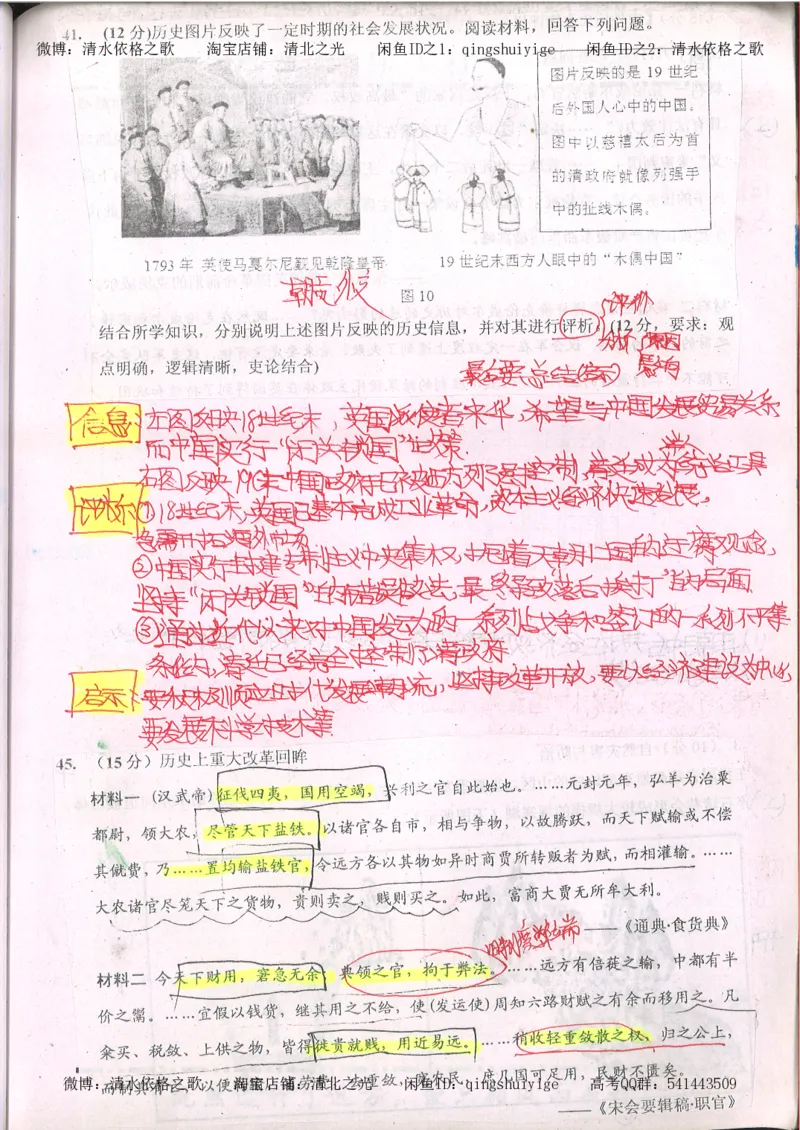 41. (12 分)历史图片反映了一定时期的社会发展状况。阅读材料，回答下列问题。
微博：清水依格之歌 淘宝店铺：清北之光 闲鱼ID之1：qingshuiyige 闲鱼ID之2：清水依格之歌
图片反映的是 19 世纪
后外国人心中的中国。
图中以慈禧太后为首
的清政府就像列强手
中的扯线木偶。
1793 年 英使马戛尔尼觐见乾隆皇帝
19 世纪末西方人眼中的“木偶中国”
图 10
评价
结合所学知识，分别说明上述图片反映的历史信息，并对其进行评析。(12 分，要求：观
点明确，逻辑清晰，史论结合)
原因
最后要总结(启示)
信息：左图反映18世纪末，英国派使者来华，希望与中国发展贸易关系
而中国实行“闭关锁国”政策
①18世纪末，英国已基本完成工业革命，资本主义经济快速发展。
急需开拓海外市场
②中国实行封建专制主义中央集权，抱着天朝上国的迂腐观念，
坚持“闭关锁国”的错误做法，最终导致“落后挨打”的局面
③通过近代以来对中国发动的一系列战争和签订的一系列不平等
条约，清廷已经完全
启示：要积极顺应时代发展潮流，坚持改革开放，要以经济建设为中心
要发展科学技术等
45. （15 分）历史上重大改革回眸
材料一 (汉武帝) 征伐四夷，国用空竭，兴利之官自此始也。……元封元年，弘羊为治粟
都尉，领大农，尽管天下盐铁。以诸官各自市，相与争物，以故腾跃，而天下赋输或不偿
其僦费，乃……置均输盐铁官，令远方各以其物如异时商贾所转贩者为赋，而相灌输。……
大农诸官尽笼天下之货物，贵则卖之，贱则买之。如此，富商大贾无所牟大利。
旧制度弊端
——《通典·食货典》
材料二 今天下财用，窘急无余，典领之官，拘于弊法。……远方有倍蓰之输，中都有半
价之鬻。……宜假以钱货，继其用之不给，使(发运使)周知六路财赋之有余而移用之。凡
籴买、税敛、上供之物，皆得徙贵就贱，用近易远。……稍收轻重敛散之权，归之公上，
微博：清水依格之歌 淘宝店铺：清北之光 闲鱼ID：qingshuiyige 高考QQ群：541443509
而制其有无，以便转输，省劳费，去重敛，宽农民，庶几国可足用，民财不匮矣。
——《宋会要辑稿·职官》